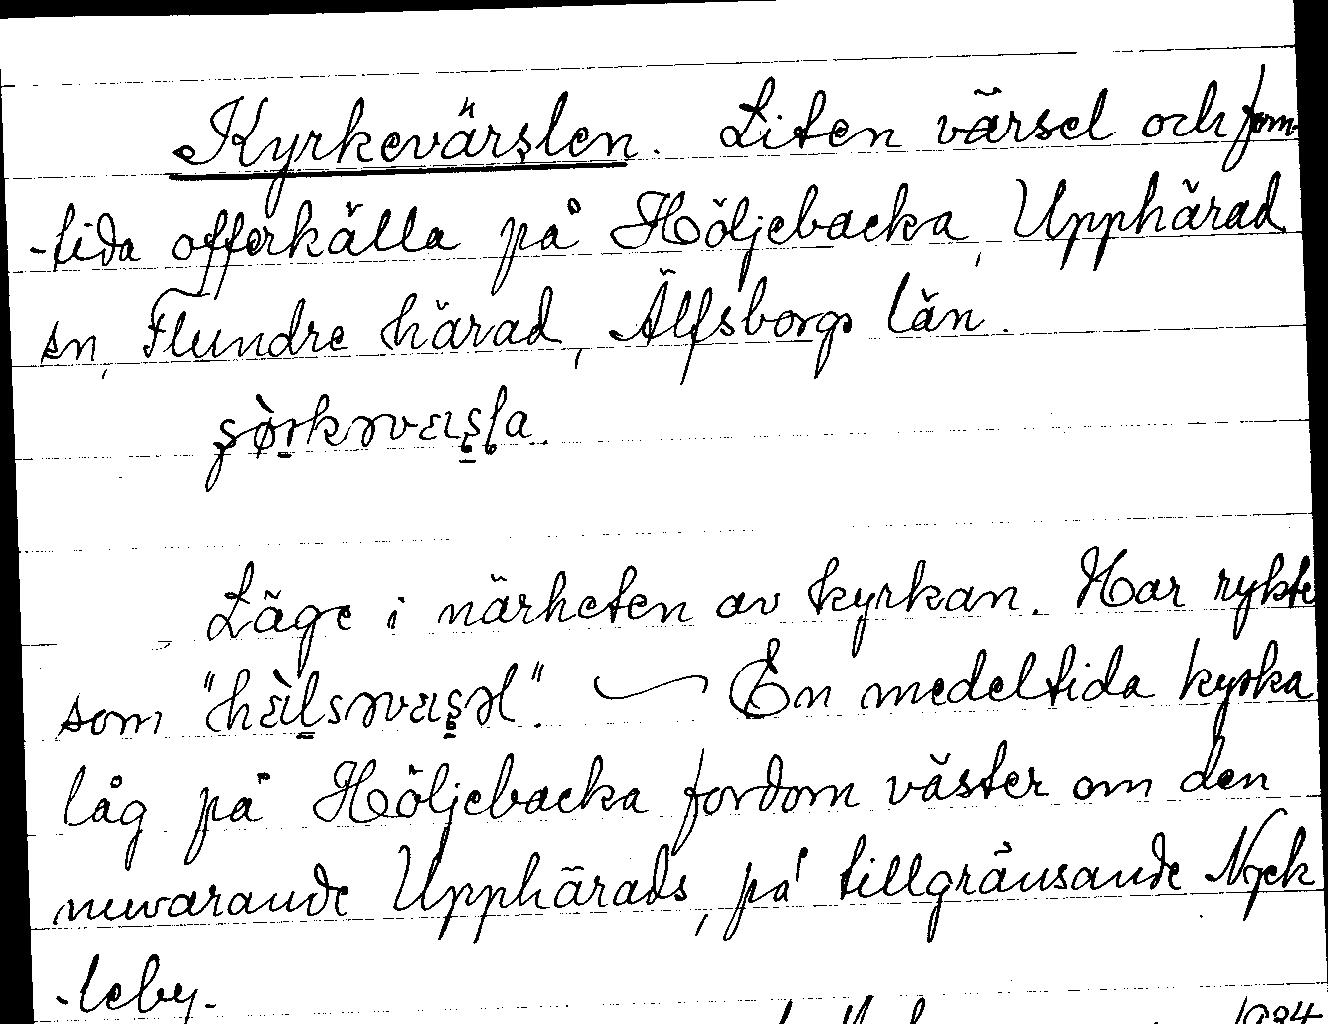 Kyrkevärslen. Liten värsel och forn-
-tida offerkälla på Höljebacka, Upphärad
sn, Flundre härad, Älfsborgs län.
Läge i närheten av kyrkan. Har rykte
som En medeltida kyrka
låg på Höljebacka fordom väster om den
nuvarande Upphärads, på tillgränsande Nyck
-leby.